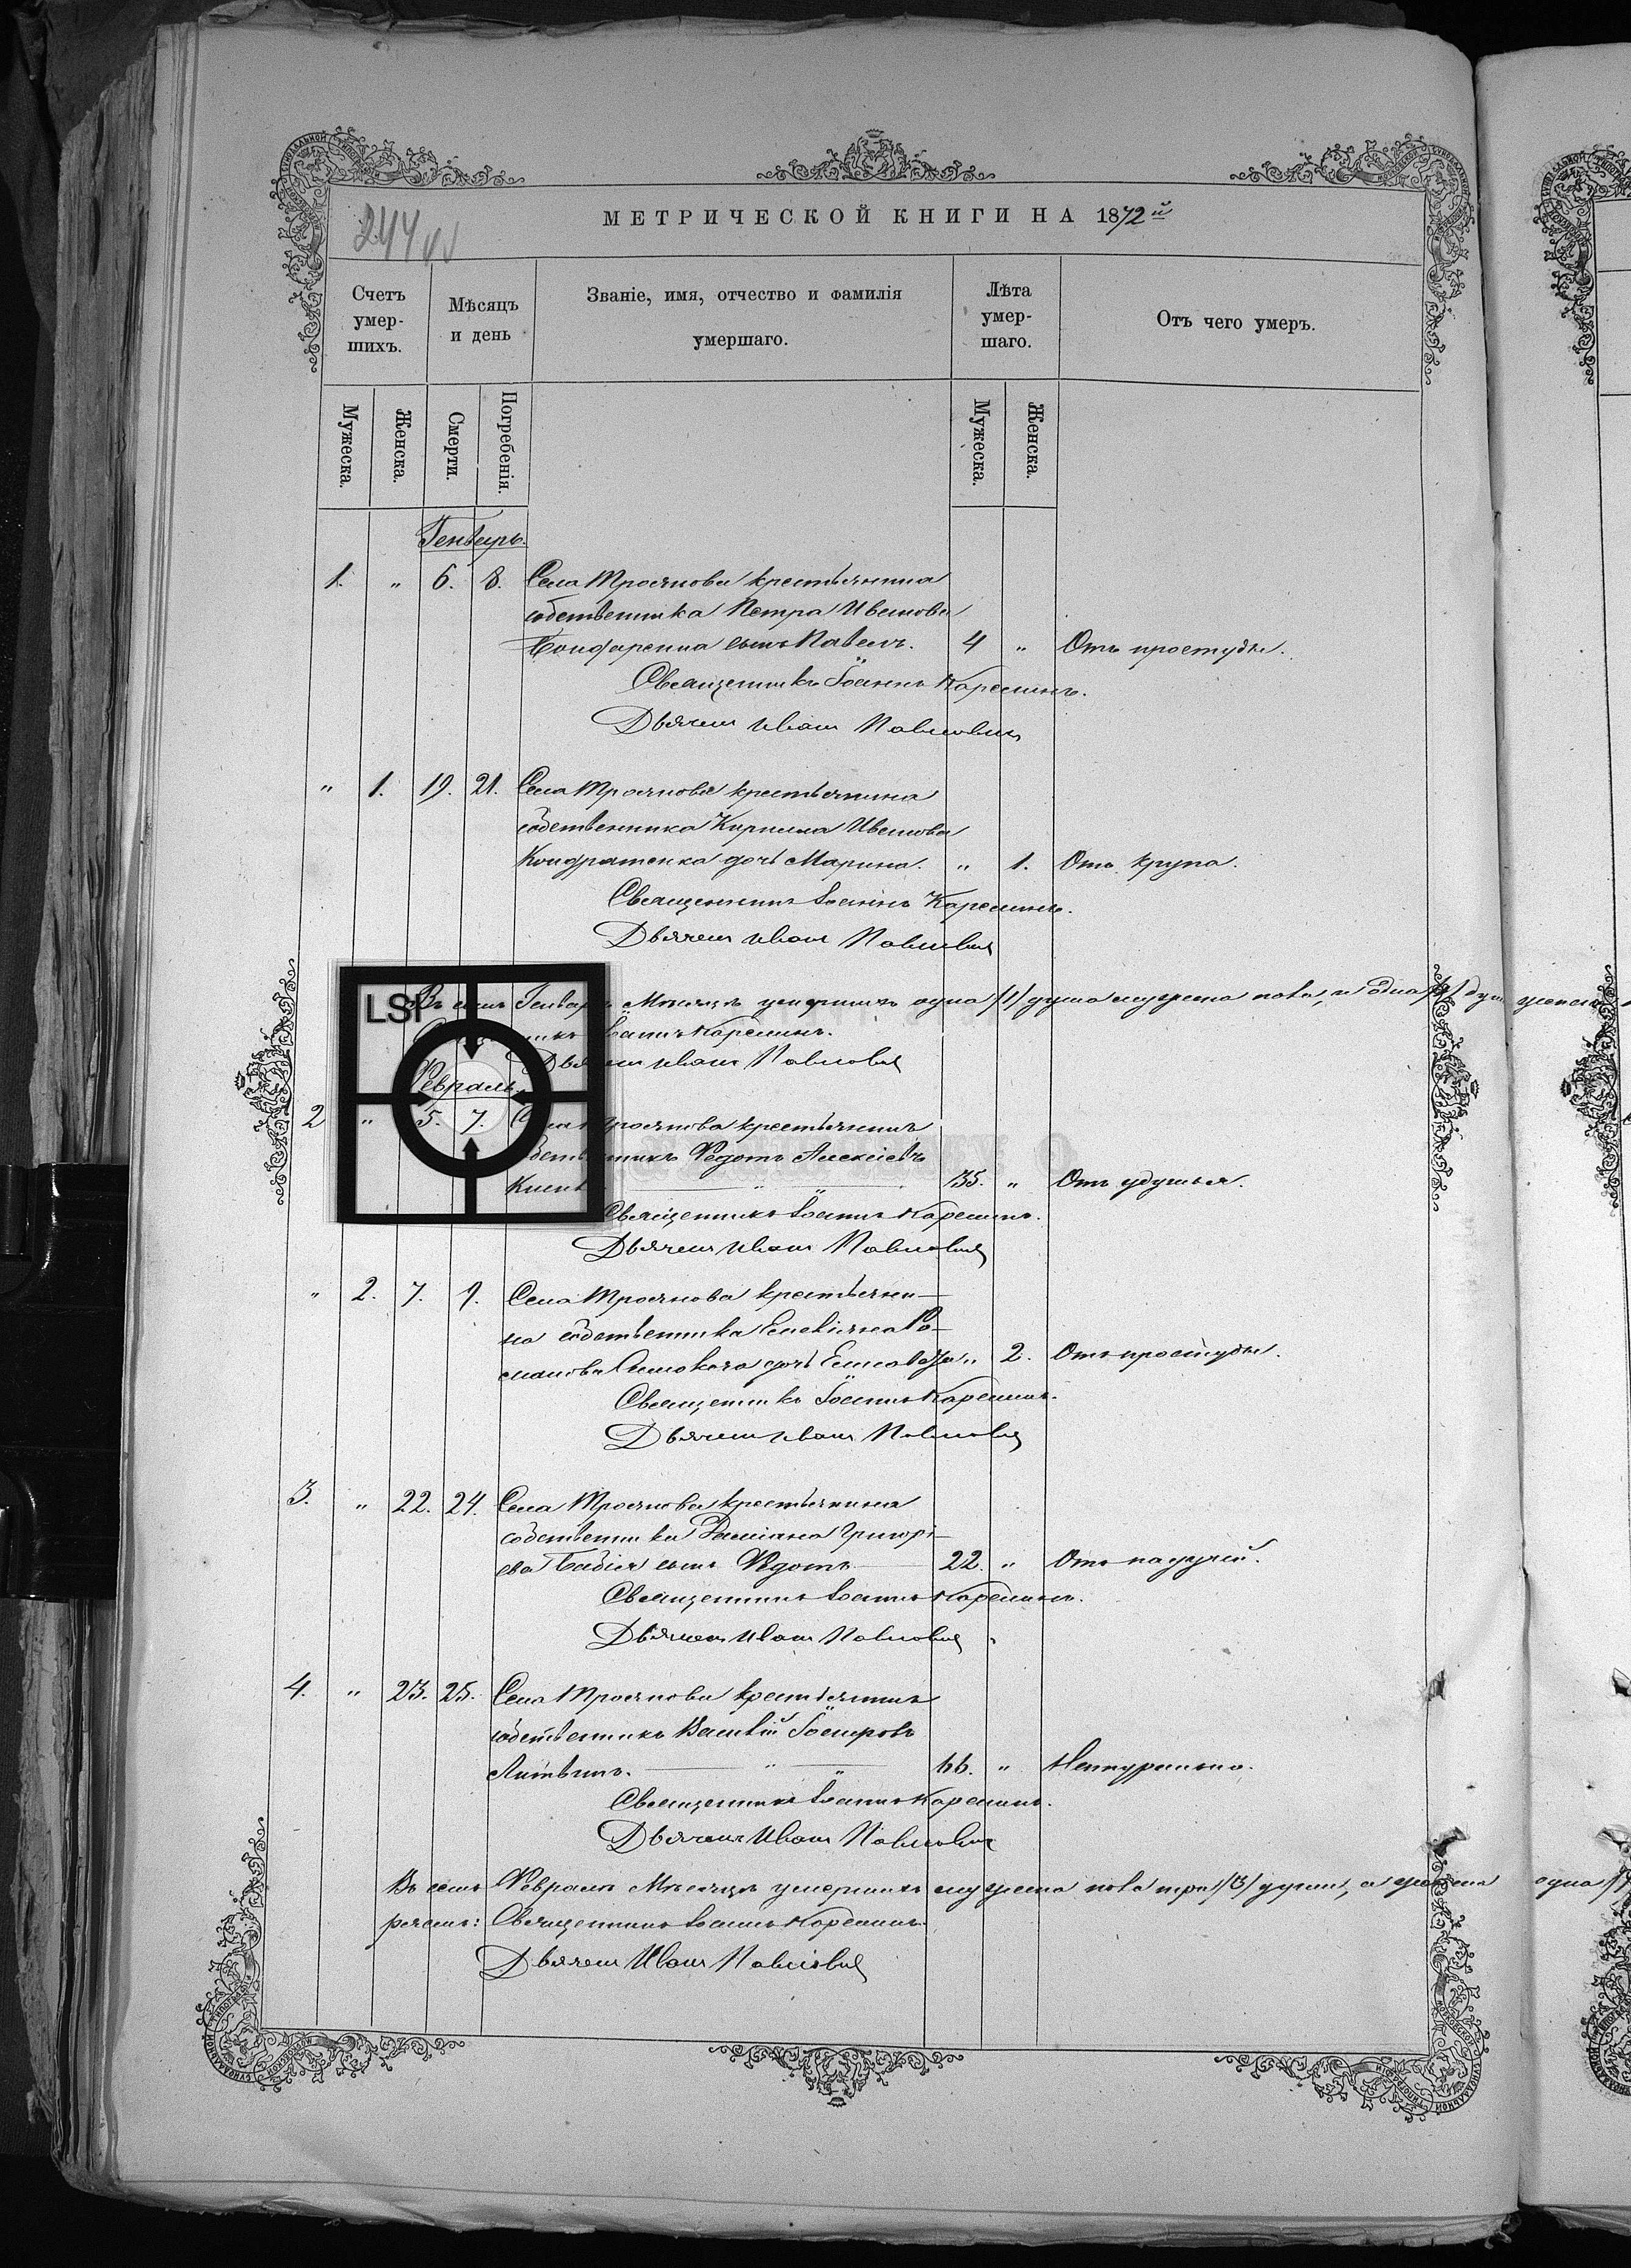 244
МЕТРИЧЕСКОЙ КНИГИ НА 1872й
Счетъ умер-шихъ.
Мѣсяцъ и день
Званіе, имя, отчество и фамилія умершаго.
Лѣта умер-шаго.
Отъ чего умеръ.
Мужеска. Женска. Смерти. Погребенія. Мужеска. Женска.
Генварь.
1. " 6. 8. Села Троянова крестьянина
собственника Петра Иванова
сынъ Павелъ. 4 " Отъ простуды.
Священникъ Іоаннъ Карелинъ.
Дьячекъ Иванъ Павлович
" 1. 19. 21. Села Троянова крестьянина
собственника Кирилла Иванова
Кондратенка дочь Марина. " 1. Отъ крупа.
Священникъ Іоаннъ Карелинъ.
Дьячекъ Иванъ Павлович
LSI
Въ семъ Генварѣ Мѣсяцѣ умершихъ одна /1/ душа мужеска пола, и одна /1/ душа женска
Іоаннъ Карелинъ.
Дьячекъ Иванъ Павлович
Февраль.
2 " 5. 7. Села Троянова крестьянинъ
собственникъ Федотъ Алексіевъ
" " 35. " Отъ удушья.
Священникъ Іоаннъ Карелинъ.
Дьячекъ Иванъ Павлович
" 2. 7. 9. Села Троянова крестьяни-
на собственника Ро-
манова дочь 2. Отъ простуды.
Священникъ Іоаннъ Карелинъ.
Дьячекъ Иванъ Павлович
3. " 22. 24. Села Троянова крестьянина
собственника Даміана Григорі-
ева Бабича сынъ Федотъ 22. " Отъ падучей.
Священникъ Іоаннъ Карелинъ.
Дьячекъ Иванъ Павлович
4. " 23. 25. Села Троянова крестьянинъ
собственникъ
Литвинъ. " " 66. " Натурально.
Священникъ Іоаннъ Карелинъ.
Дьячекъ Иванъ Павлович
Въ семъ Февралѣ Мѣсяцѣ умершихъ мужеска пола три /3/ души, а женска одна
Священникъ Іоаннъ Карелинъ.
Дьячекъ Иванъ Павлович